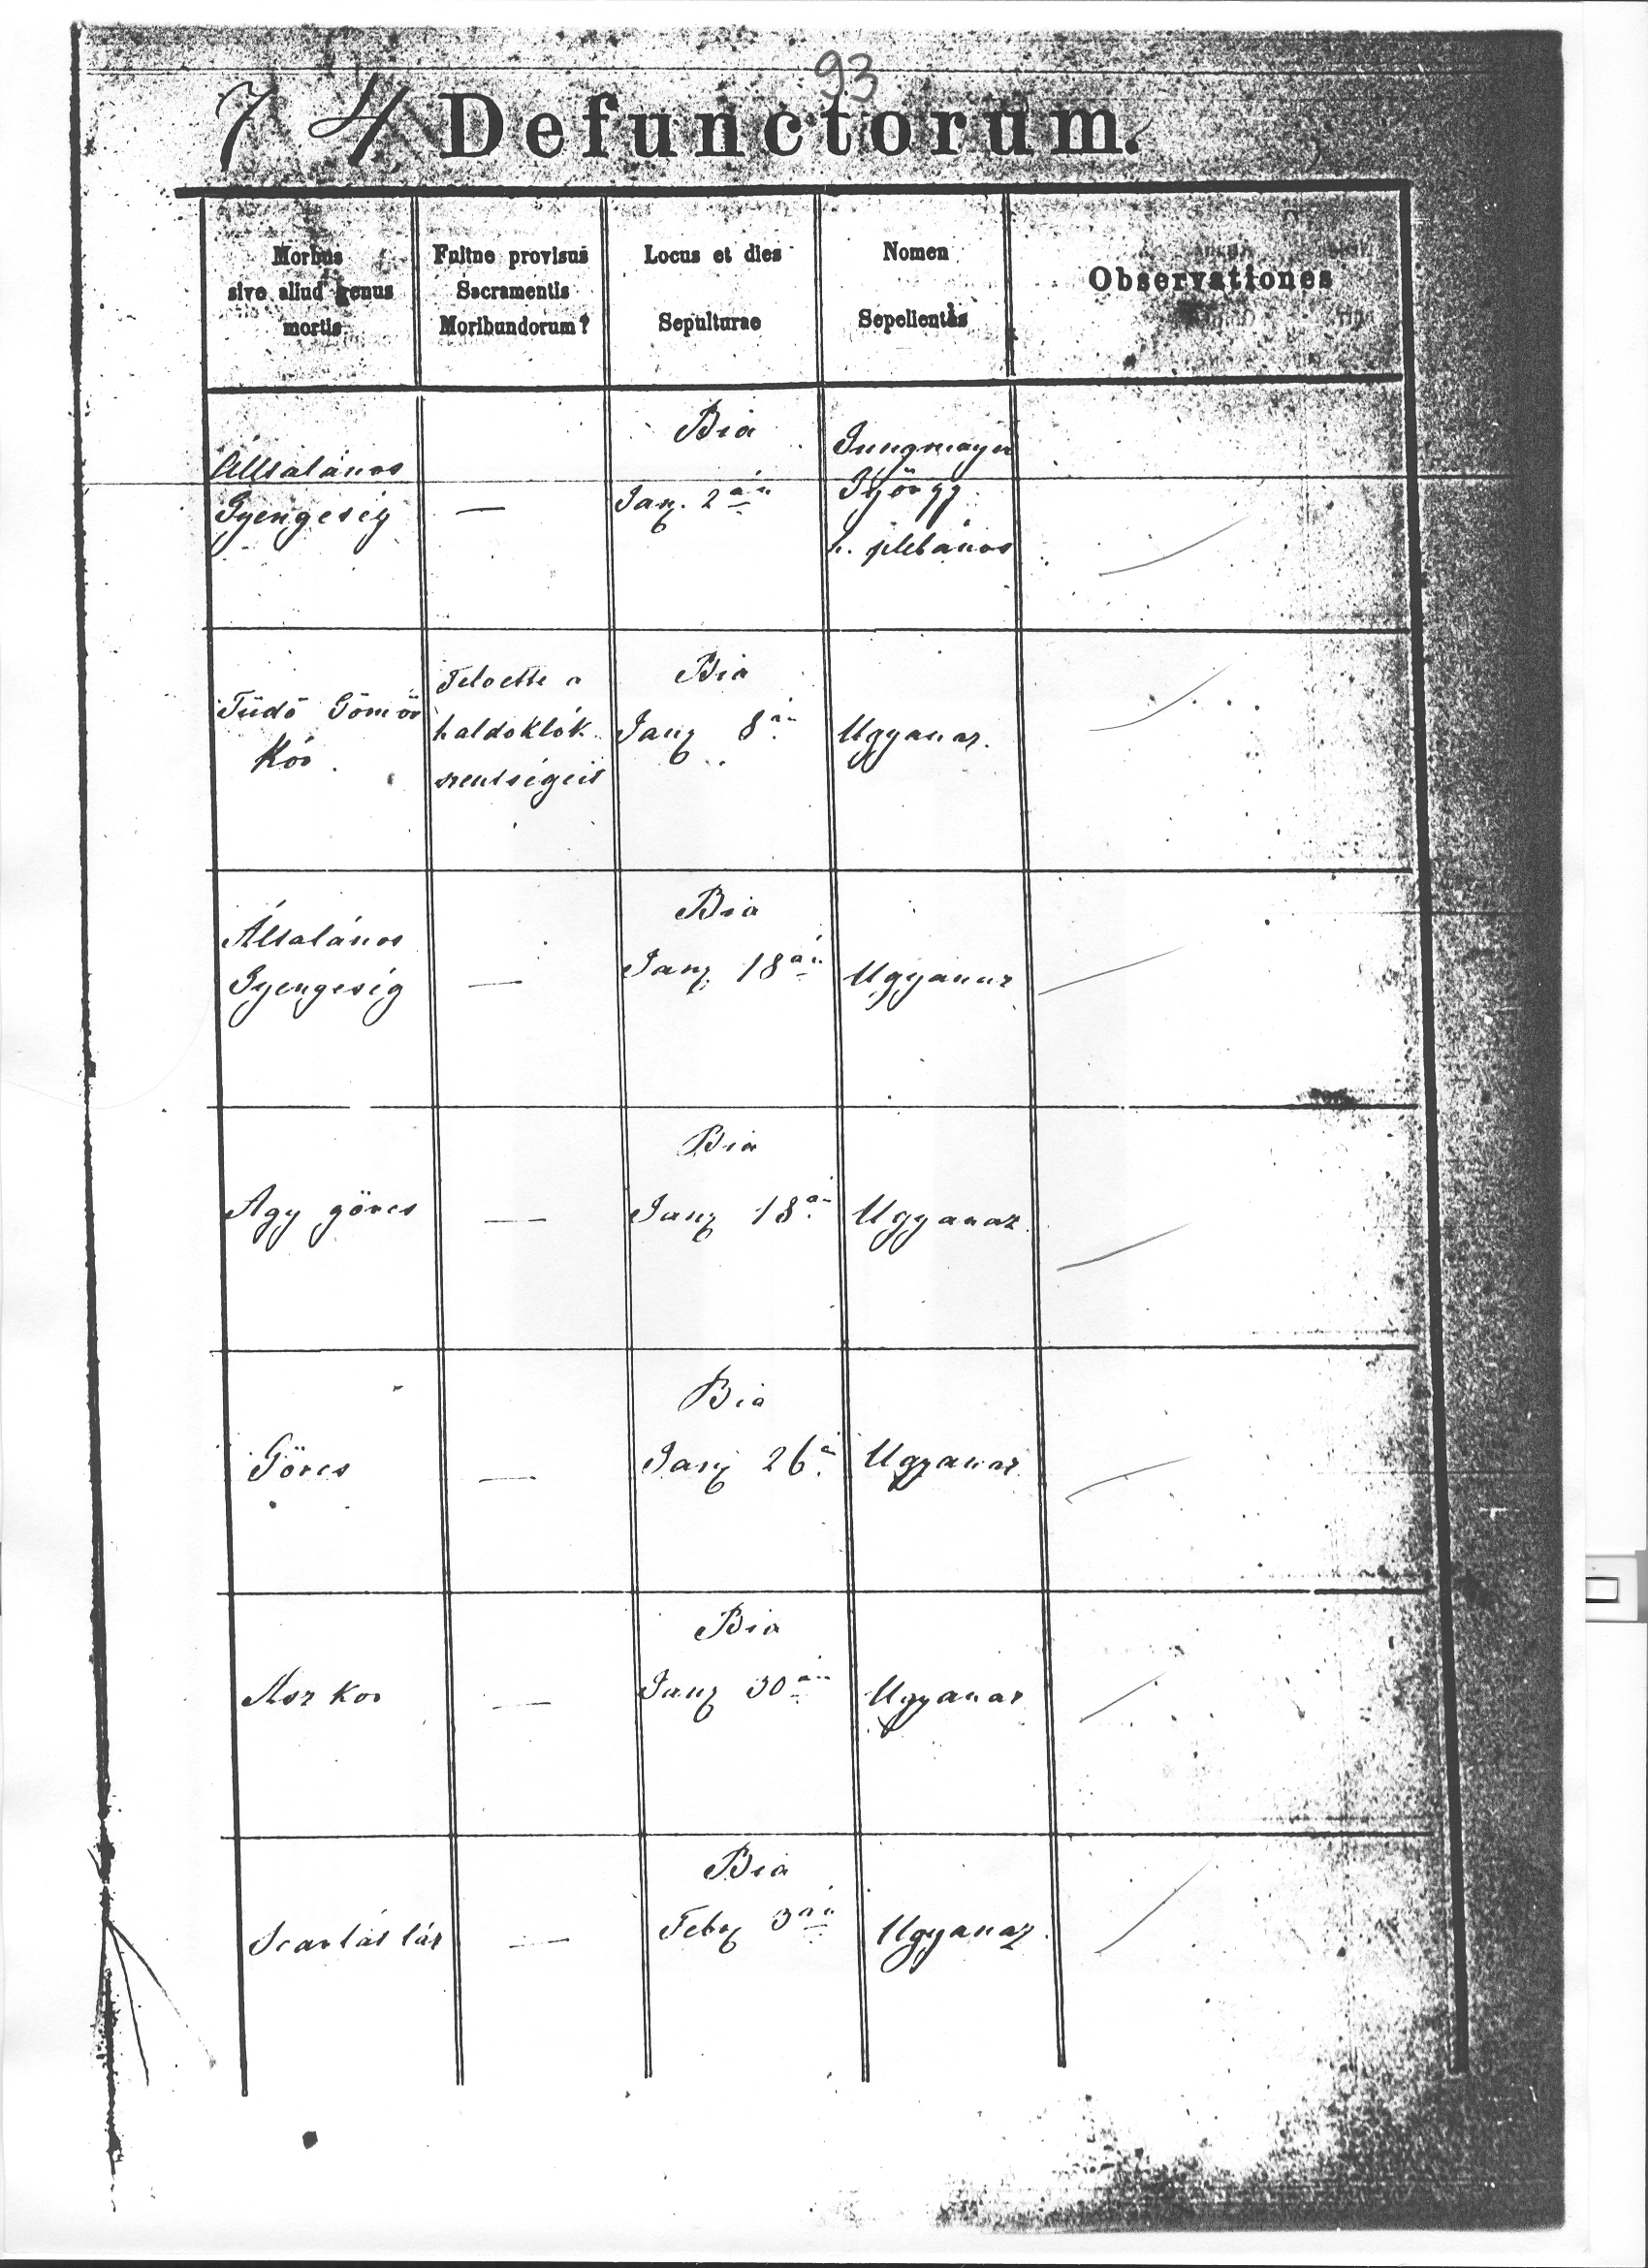 93
7 4 Defunctorum.
Morbus
sive aliud genus
mortis
Fuitne provisus
Sacramentis
Moribundorum?
Locus et dies
Sepulturae
Nomen
Sepelientis
Observationes
Általános
Gyengeség
—
Bia
Janr. 2án
Jungmayer
György
h. plébános
Tüdő Gömör
Kór
Felvette a
haldoklók
szentségeit
Bia
Janr 8án
Ugyanaz.
Általános
Gyengeség
—
Bia
Janr. 18án
Ugyanaz
Agy görcs
—
Bia
Janr 18án
Ugyanaz
Görcs
—
Bia
Janr 26á
Ugyanaz
Asz kor
—
Bia
Janr 30án
Ugyanaz
Scarlát láz
—
Bia
Febr 3án
Ugyanaz